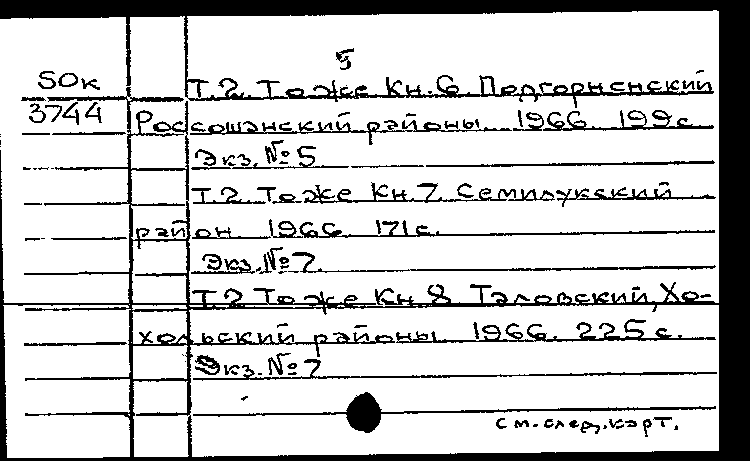 5
50к Т.2. Тоже Кн.6. Подгорненский
3744 Россошанский районы 1966 199с
Экз. №5
Т.2. Тоже Кн.7. Семилукский
район. 1966. 171с.
Экз. №7.
Т.2 Тоже Кн.8 Таловский, Хо-
хольский районы 1966. 225с.
Экз. №7
См. след. карт.